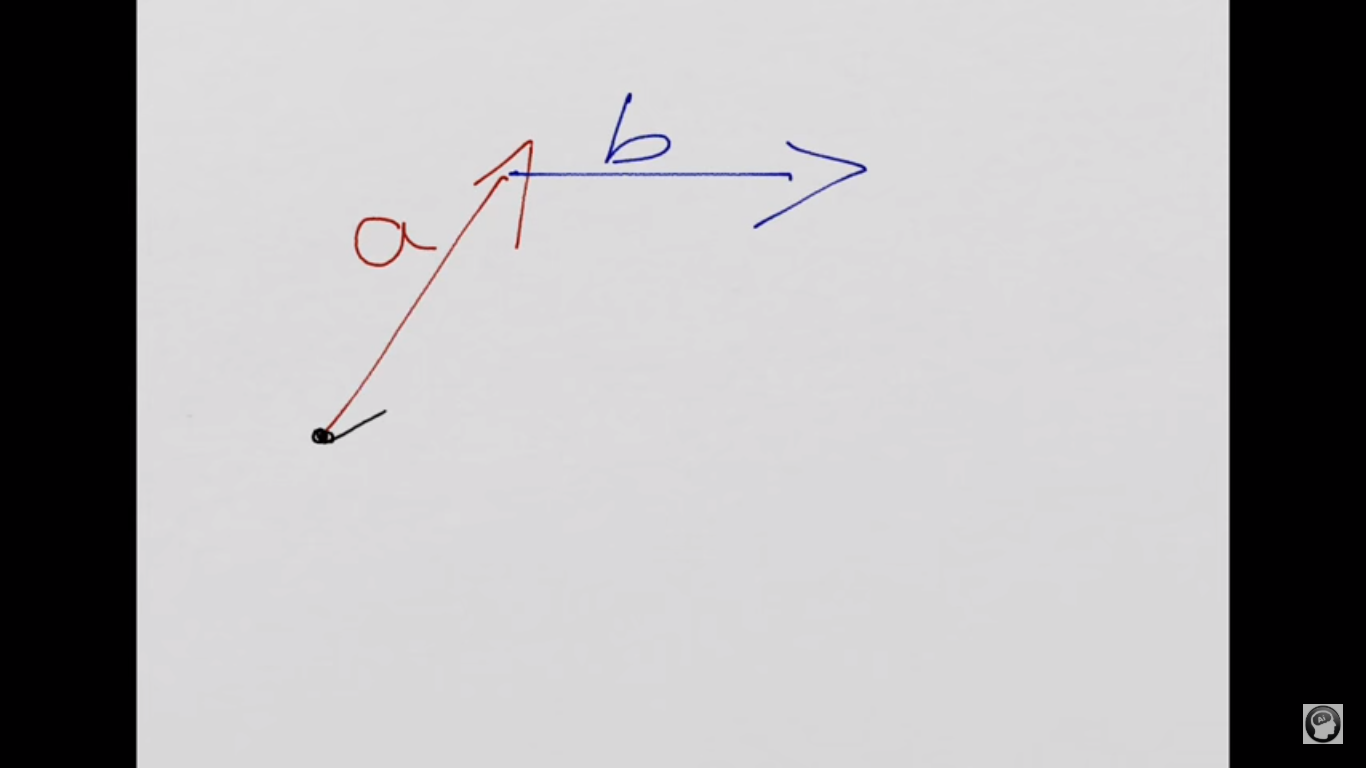 b
a
Ai